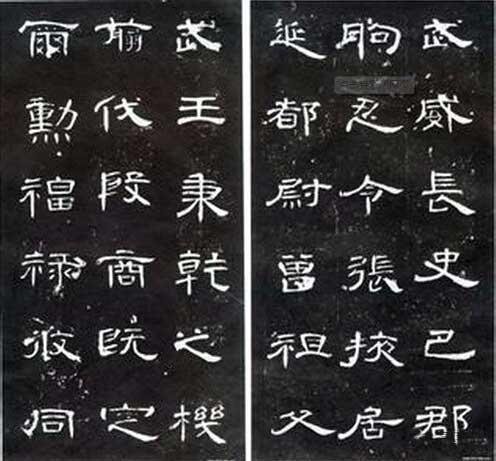 武威長史巴郡
朐忍令張掖居
延都尉曾祖父
武王秉乾之機
翦伐殷商既定
爾勳福祿攸同